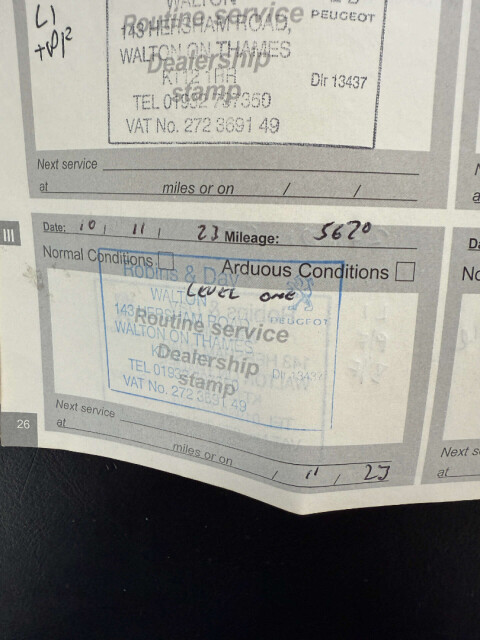 L1
+PP2
WALTON
Routine service
PEUGEOT
143 HERSHAM ROAD,
WALTON ON THAMES
Dealership
KT12 1HR
Dlr 13437
stamp
TEL 01932 737350
VAT No. 272 3691 49
Next service
at miles or on / /
III
Date: 10 / 11 / 23 Mileage: 5620
Normal Conditions Arduous Conditions
Robins & Day
LEVEL ONE
WALTON
PEUGEOT
143 HERSHAM ROAD
Routine service
WALTON ON THAMES
Dealership
Dlr 13437
TEL 01932
stamp
VAT No. 272 3691 49
Next service
26
at miles or on / 11 /
Next s
at